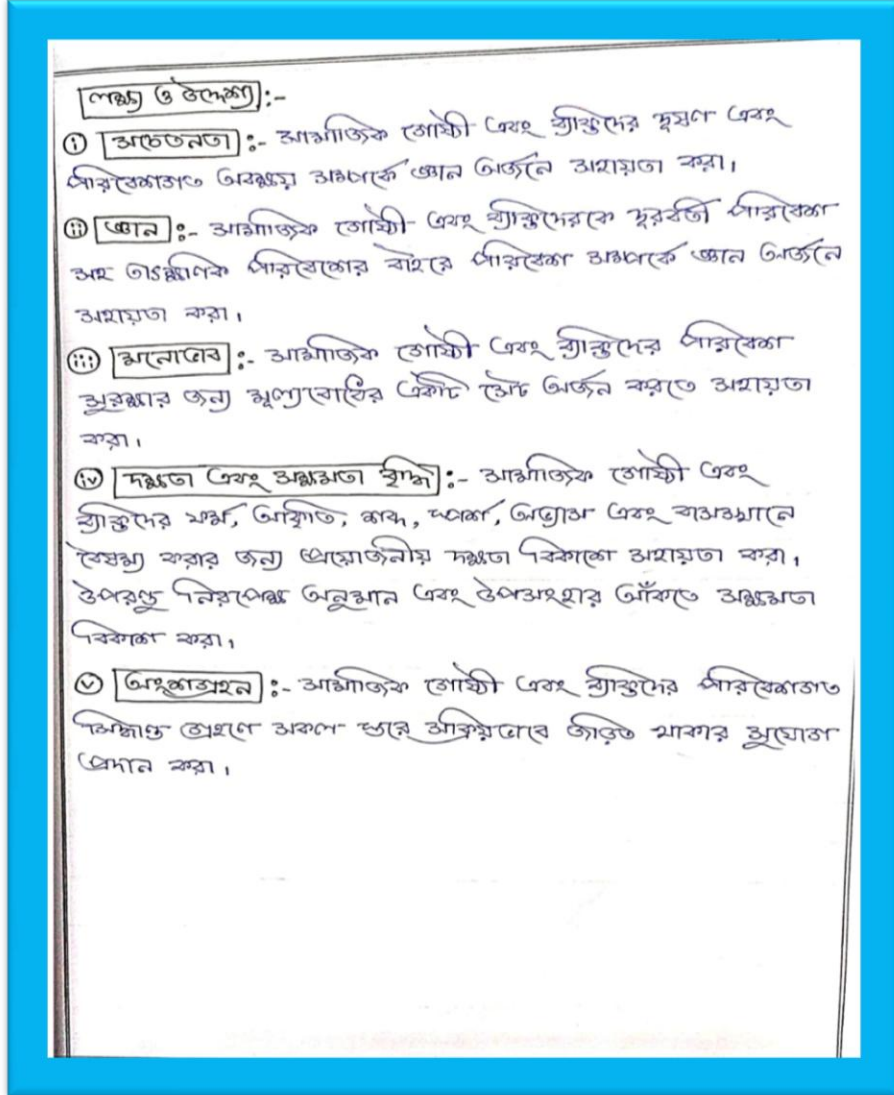 লক্ষ্য ও উদ্দেশ্য :-
(i) সচেতনতা :- সামাজিক গোষ্ঠী এবং ব্যক্তিদের দূষণ এবং
পরিবেশগত অবক্ষয় সম্পর্কে জ্ঞান অর্জনে সহায়তা করা।
(ii) জ্ঞান :- সামাজিক গোষ্ঠী এবং ব্যক্তিদেরকে দূরবর্তী পরিবেশ
সহ তাৎক্ষণিক পরিবেশের বাইরে পরিবেশ সম্পর্কে জ্ঞান অর্জনে
সহায়তা করা।
(iii) মনোভাব :- সামাজিক গোষ্ঠী এবং ব্যক্তিদের পরিবেশ
সুরক্ষার জন্য মূল্যবোধের একটি সেট অর্জন করতে সহায়তা
করা।
(iv) দক্ষতা এবং সক্ষমতা বৃদ্ধি :- সামাজিক গোষ্ঠী এবং
ব্যক্তিদের ফর্ম, আকৃতি, শব্দ, স্পর্শ, অভ্যাস এবং বাসস্থানে
বৈষম্য করার জন্য প্রয়োজনীয় দক্ষতা বিকাশে সহায়তা করা।
উপরন্তু নিরপেক্ষ অনুমান এবং উপসংহার আঁকতে সক্ষমতা
বিকাশ করা।
(v) অংশগ্রহন :- সামাজিক গোষ্ঠী এবং ব্যক্তিদের পরিবেশগত
সিদ্ধান্ত গ্রহণে সকল স্তরে সক্রিয়ভাবে জড়িত থাকার সুযোগ
প্রদান করা।